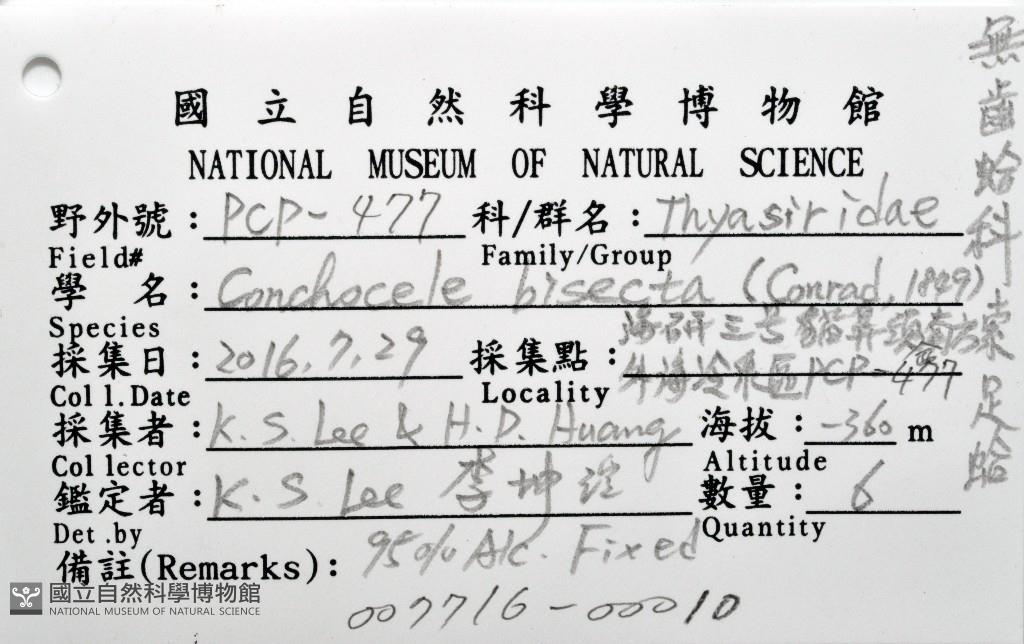 國立自然科學博物館
NATIONAL MUSEUM OF NATURAL SCIENCE
野外號: PCP-477 科/群名: Thyasiridae
Field# Family/Group
學 名: Conchocele bisecta (Conrad, 1849)
Species
採集日: 2016.7.29 採集點: 海研三號貓鼻頭南方
外海冷泉區PCP-477
Coll.Date Locality
採集者: K.S. Lee & H.D. Huang 海拔: -360 m
Collector Altitude
鑑定者: K.S. Lee 李坤瑄 數量: 6
Det.by Quantity
備註(Remarks): 95% Alc. Fixed
007716-00010
無齒蛤科 索足蛤
國立自然科學博物館
NATIONAL MUSEUM OF NATURAL SCIENCE